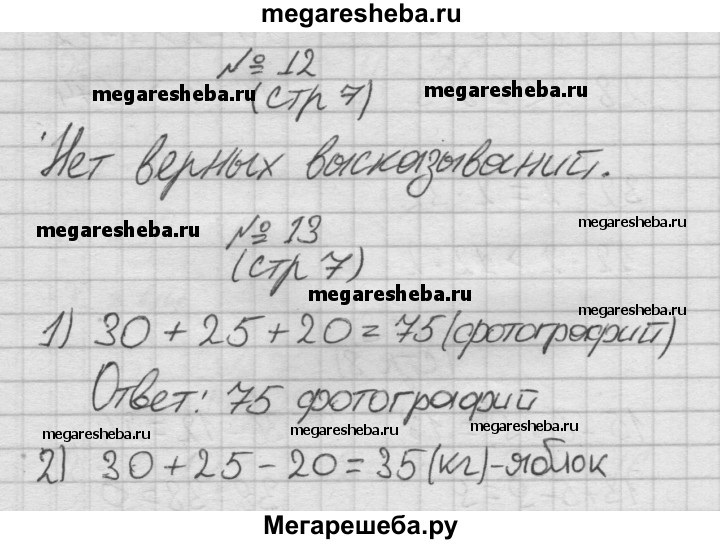 megaresheba.ru
№ 12
megaresheba.ru (стр 7) megaresheba.ru
Нет верных высказываний.
megaresheba.ru
megaresheba.ru № 13
(стр 7)
megaresheba.ru
megaresheba.ru
1) 30 + 25 + 20 = 75 (фотографий)
Ответ: 75 фотографий
megaresheba.ru megaresheba.ru megaresheba.ru
2) 30 + 25 - 20 = 35 (кг) - яблок
Мегарешеба.ру